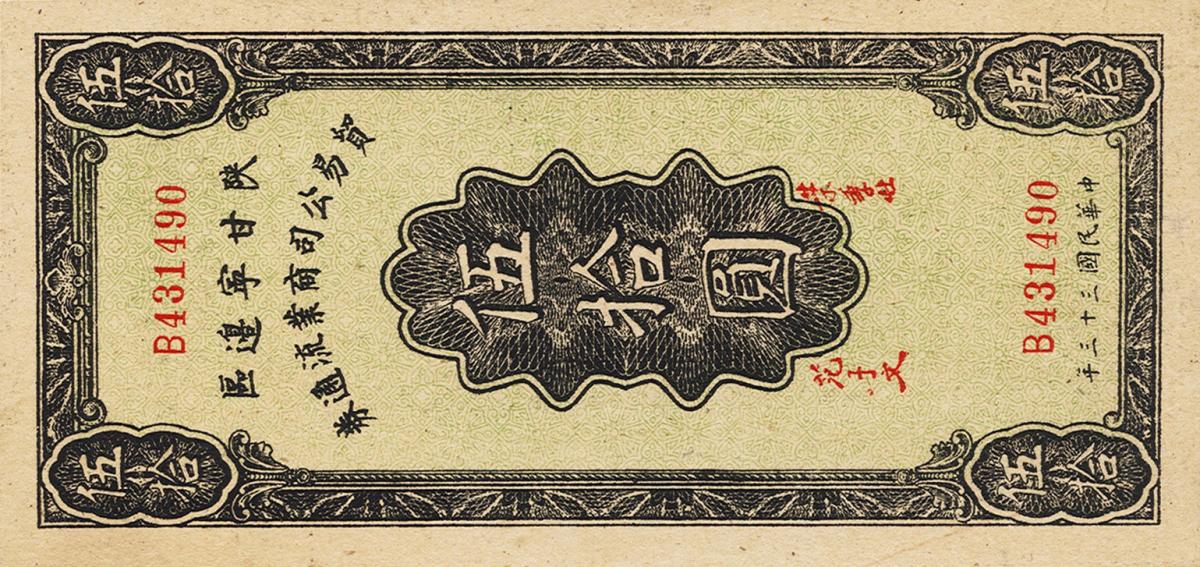 伍拾
伍拾
B431490
陝甘寧邊區
貿易公司商業流通券
伍拾圓
葉季壯
范子文
B431490
中華民國三十三年
伍拾
伍拾